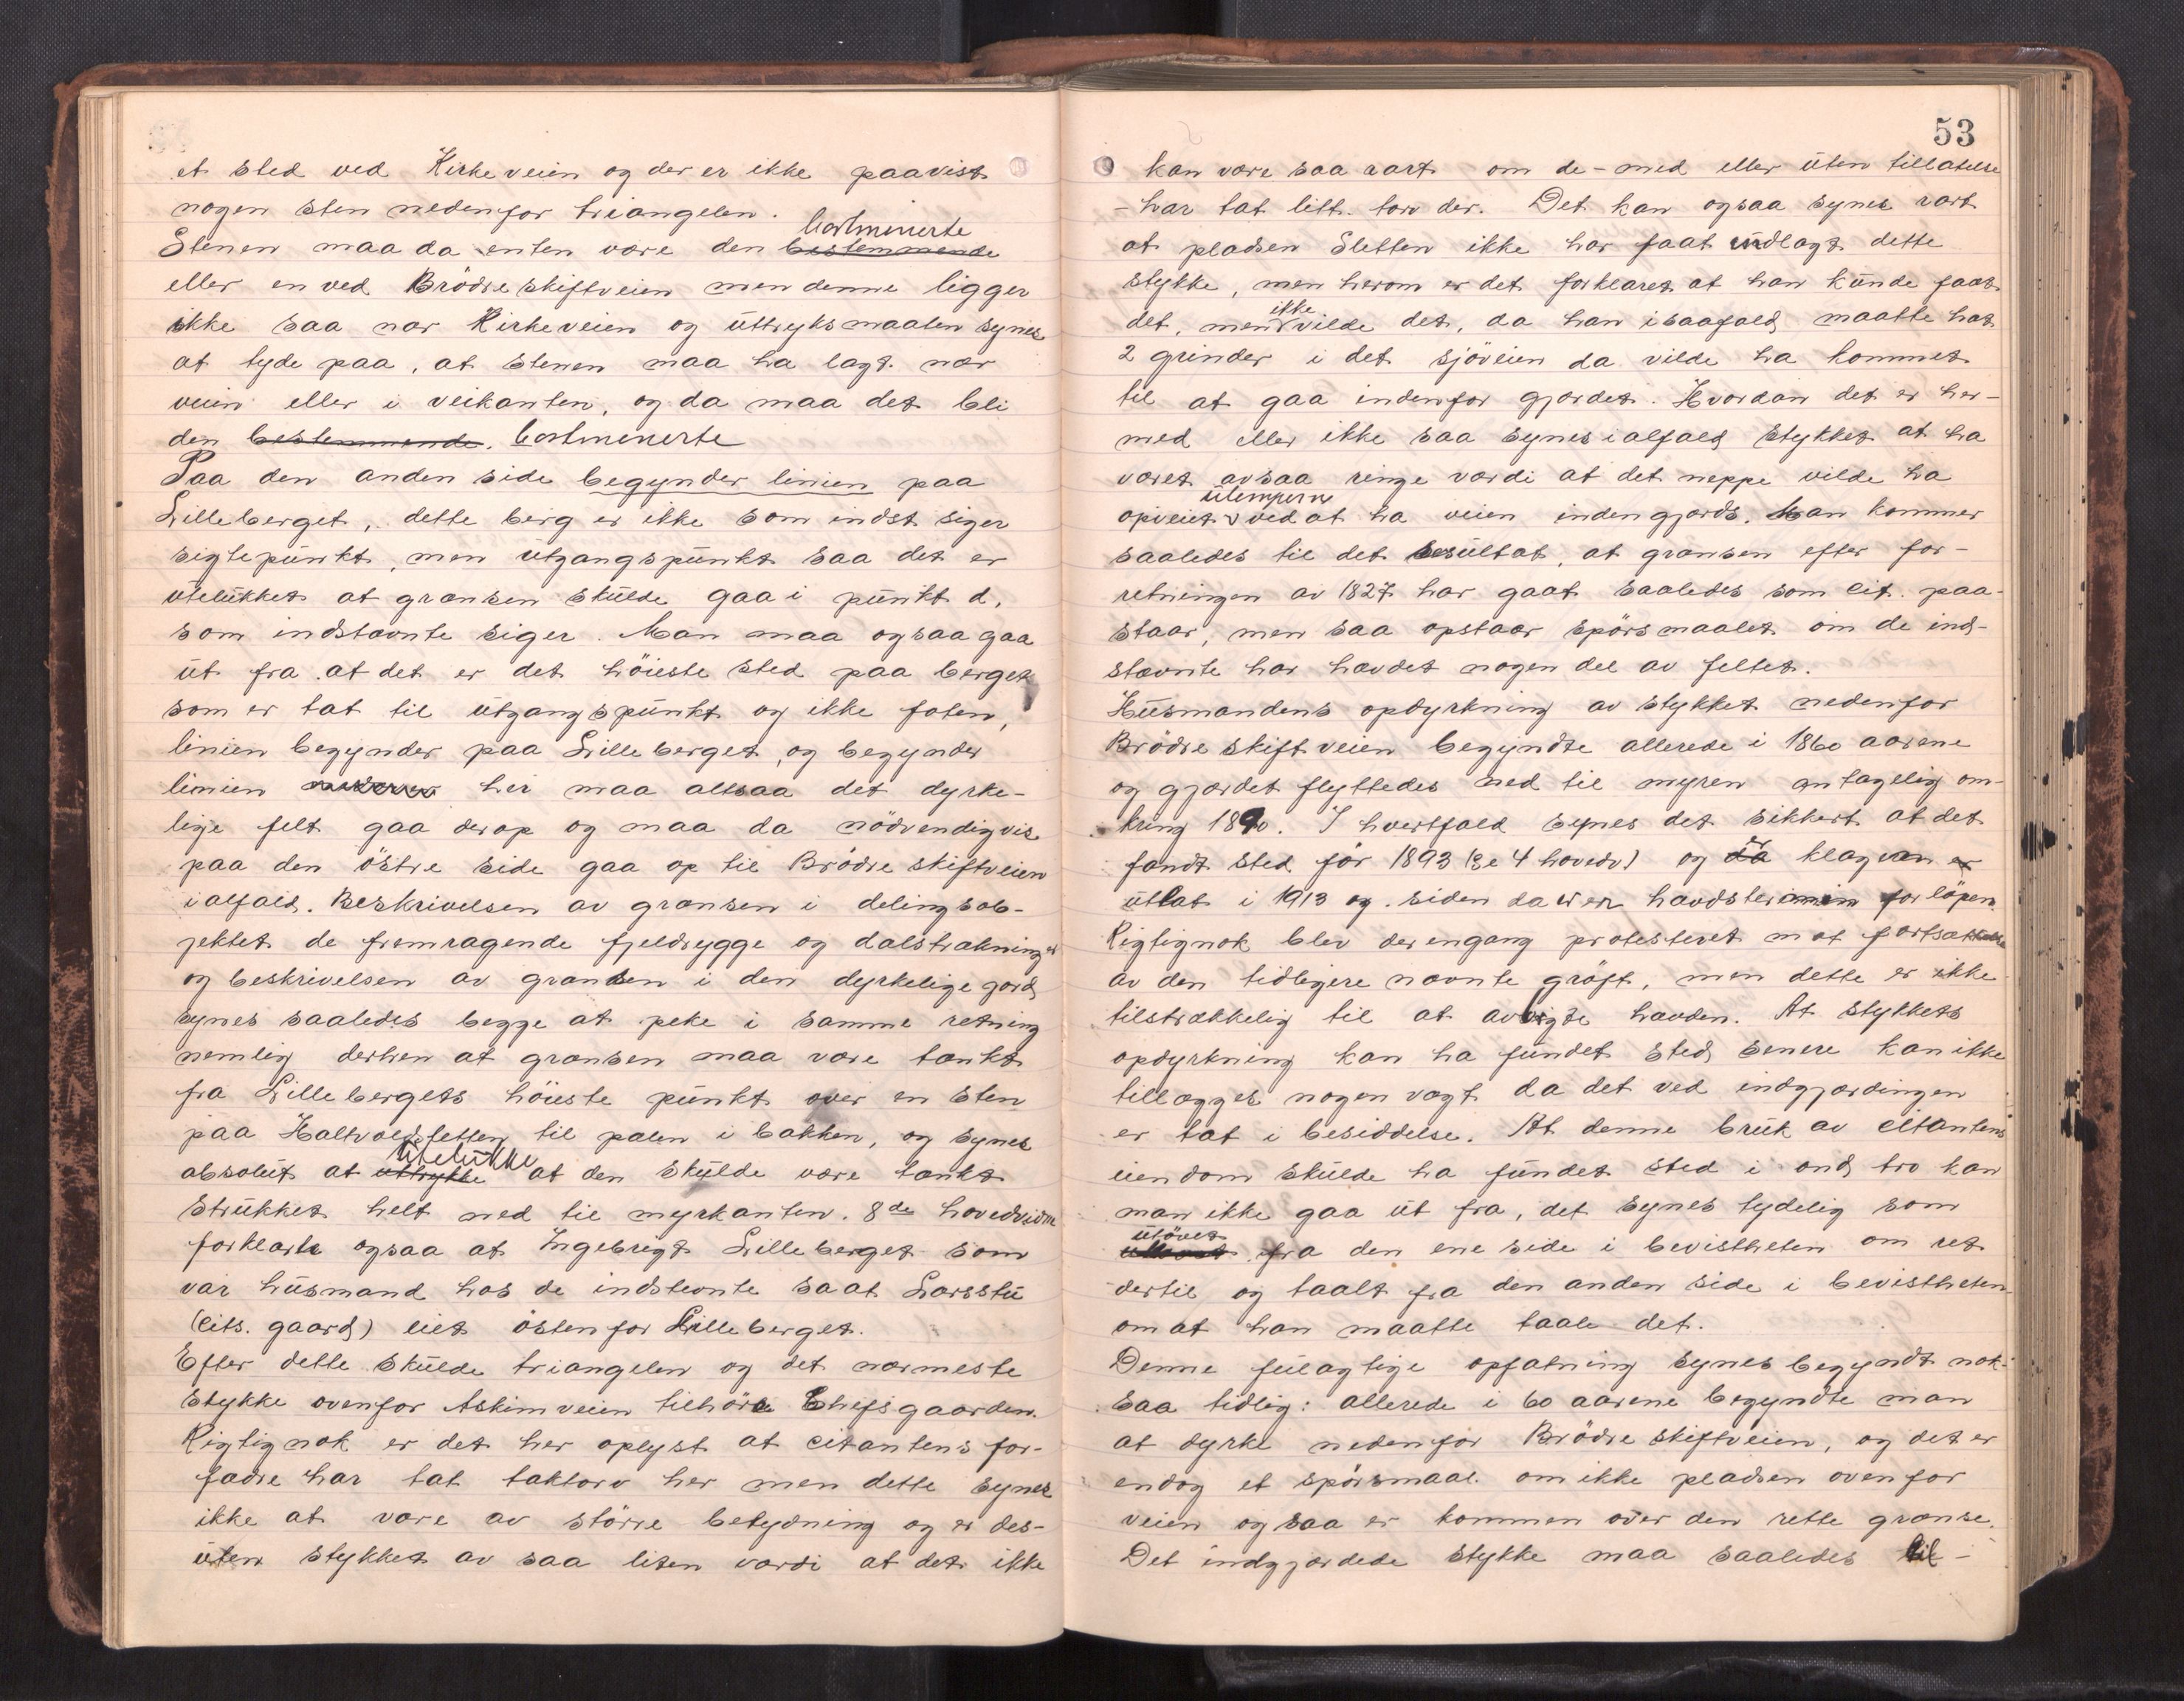 et sted ved Kirkeveien og der er ikke paavist
nogen sten nedenfor triangelen.
Stenen maa da enten være den bestemmende bortminerte
eller en ved Brödreskiftveien men denne ligger
ikke saa nær Kirkeveien og uttryksmaaten synes
at tyde paa, at stenen maa ha lagt nær
veien eller i veikanten, og da maa det bli
den bestemmende. bortminerte
Paa den anden side begynder linien paa
Lilleberget, dette berg er ikke som indst siger
sigtepunkt, men utgangspunkt saa det er
utelukket at grænsen skulde gaa i punkt d,
som indstævnte siger. Man maa ogsaa gaa
ut fra at det er det höieste sted paa berget
som er tat til utgangspunkt og ikke foten,
linien begynder paa Lilleberget, og begynder
linien her maa altsaa det dyrke-
lige felt gaa derop og maa da nödvendigvis
paa den östre side gaa op til Brödreskiftveien
ialfald. Beskrivelsen av grænsen i delingsob-
jektet de fremragende fjeldrygge og dalstrækninger
og beskrivelsen av grænsen i den dyrkelige jord
synes saaledes begge at peke i samme retning
nemlig derhen at grænsen maa være tænkt
fra Lillebergets höieste punkt over en sten
paa Haltvoldsletten til pælen i bakken, og synes
absolut at uttrykke utelukke at den skulde være tænkt
strukket helt ned til myrkanten. 8de hovedvidne
forklarte ogsaa at Ingebrigt Lilleberget som
var husmand hos de indstevnte saat Larsstu
(cits. gaard) eiet östenfor Lilleberget.
Efter dette skulde triangelen og det nærmeste
stykke ovenfor Askimveien tilhöre Chefsgaarden.
Rigtignok er det her oplyst at citantens for-
fædre har tat taktorv her men dette synes
ikke at være av större betydning og er des-
uten stykket av saa liten værdi at det ikke
53
kan være saa rart om de - med eller uten tillatelse
- har tat litt torv der. Det kan ogsaa synes rart
at pladsen Sletten ikke har faat indlagt dette
stykke, men herom er det forklaret at han kunde faat
det, men ikke vilde det, da han isaafald maatte hat
2 grinder i det sjöveien da vilde ha kommet
til at gaa indenfor gjærdet. Hvordan det er her-
med eller ikke saa synes ialfald stykket at ha
været av saa ringe værdi at det neppe vilde ha
opveiet ulempern ved at ha veien indengjærds. Man kommer
saaledes til det resultat, at grænsen efter for-
retningen av 1827 har gaat saaledes som cit. paa-
staar, men saa opstaar spörsmaalet om de ind-
stævnte har hævdet nogen del av feltet.
Husmandens opdyrkning av stykket nedenfor
Brödreskiftveien begyndte allerede i 1860 aarene
og gjærdet flyttedes ned til myren antagelig om-
kring 1890. I hvertfald synes det sikkert at det
fandt sted för 1893 (se 4 hovedv) og da klagen er
uttat i 1913 og siden da er hævdsterminen forlöpen.
Rigtignok blev der engang protesteret mot fortsættelse
av den tidligere nævnte gröft, men dette er ikke
tilstrækkelig til at avbryde hævden. At stykkets
opdyrkning kan ha fundet sted senere kan ikke
tillægges nogen vægt da det ved indgjærdingen
er tat i besiddelse. At denne bruk av citantens
eiendom skulde ha fundet sted i ond tro kan
man ikke gaa ut fra, det synes tydelig som
utövet fra den ene side i bevistheten om ret
dertil og taalt fra den anden side i bevistheten
om at han maatte taale det.
Denne feilagtige opfatning synes begyndt nok-
saa tidlig: allerede i 60 aarene begyndte man
at dyrke nedenfor Brödreskiftveien, og det er
endog et spörsmaal om ikke pladsen ovenfor
veien ogsaa er kommen over den rette grænse.
Det indgjærdede stykke maa saaledes til-